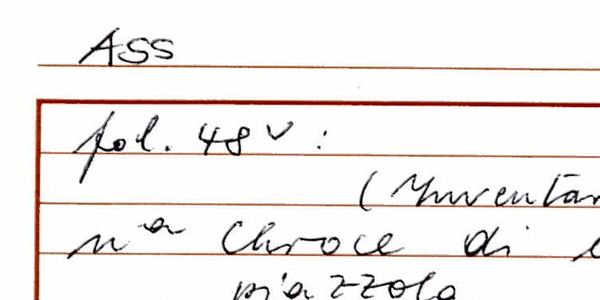 ASS
fol. 48 v :
(Ynventar
nª Chroce di
piazzola